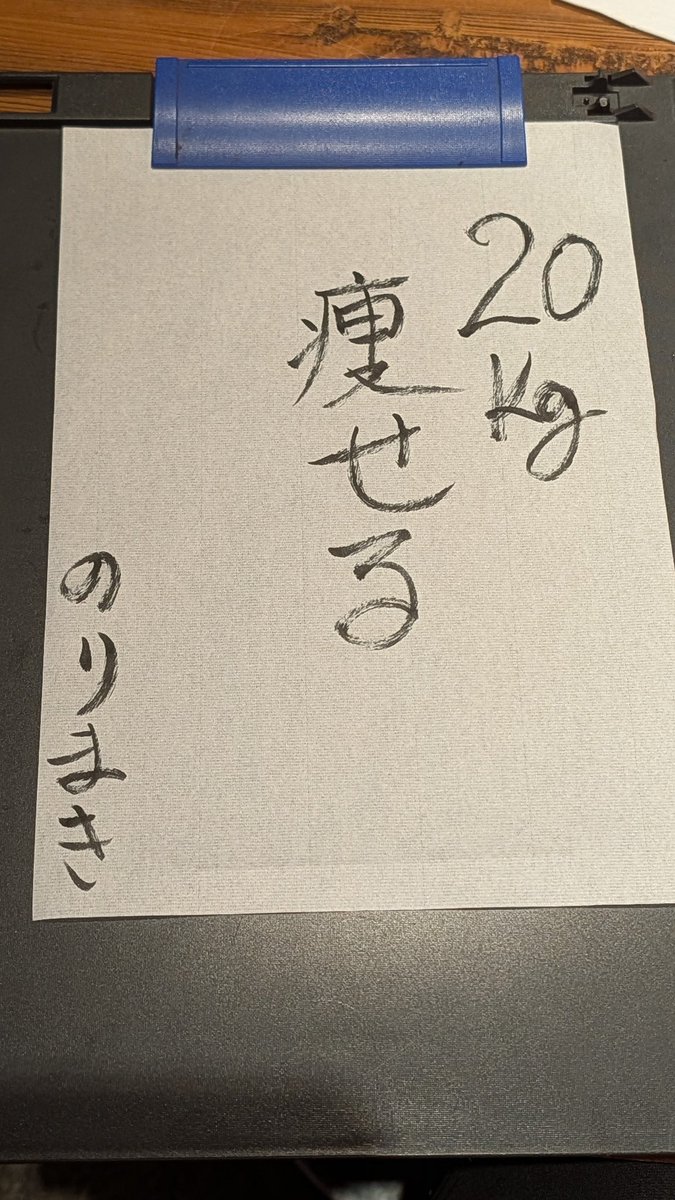 20kg
痩せる
のりまき